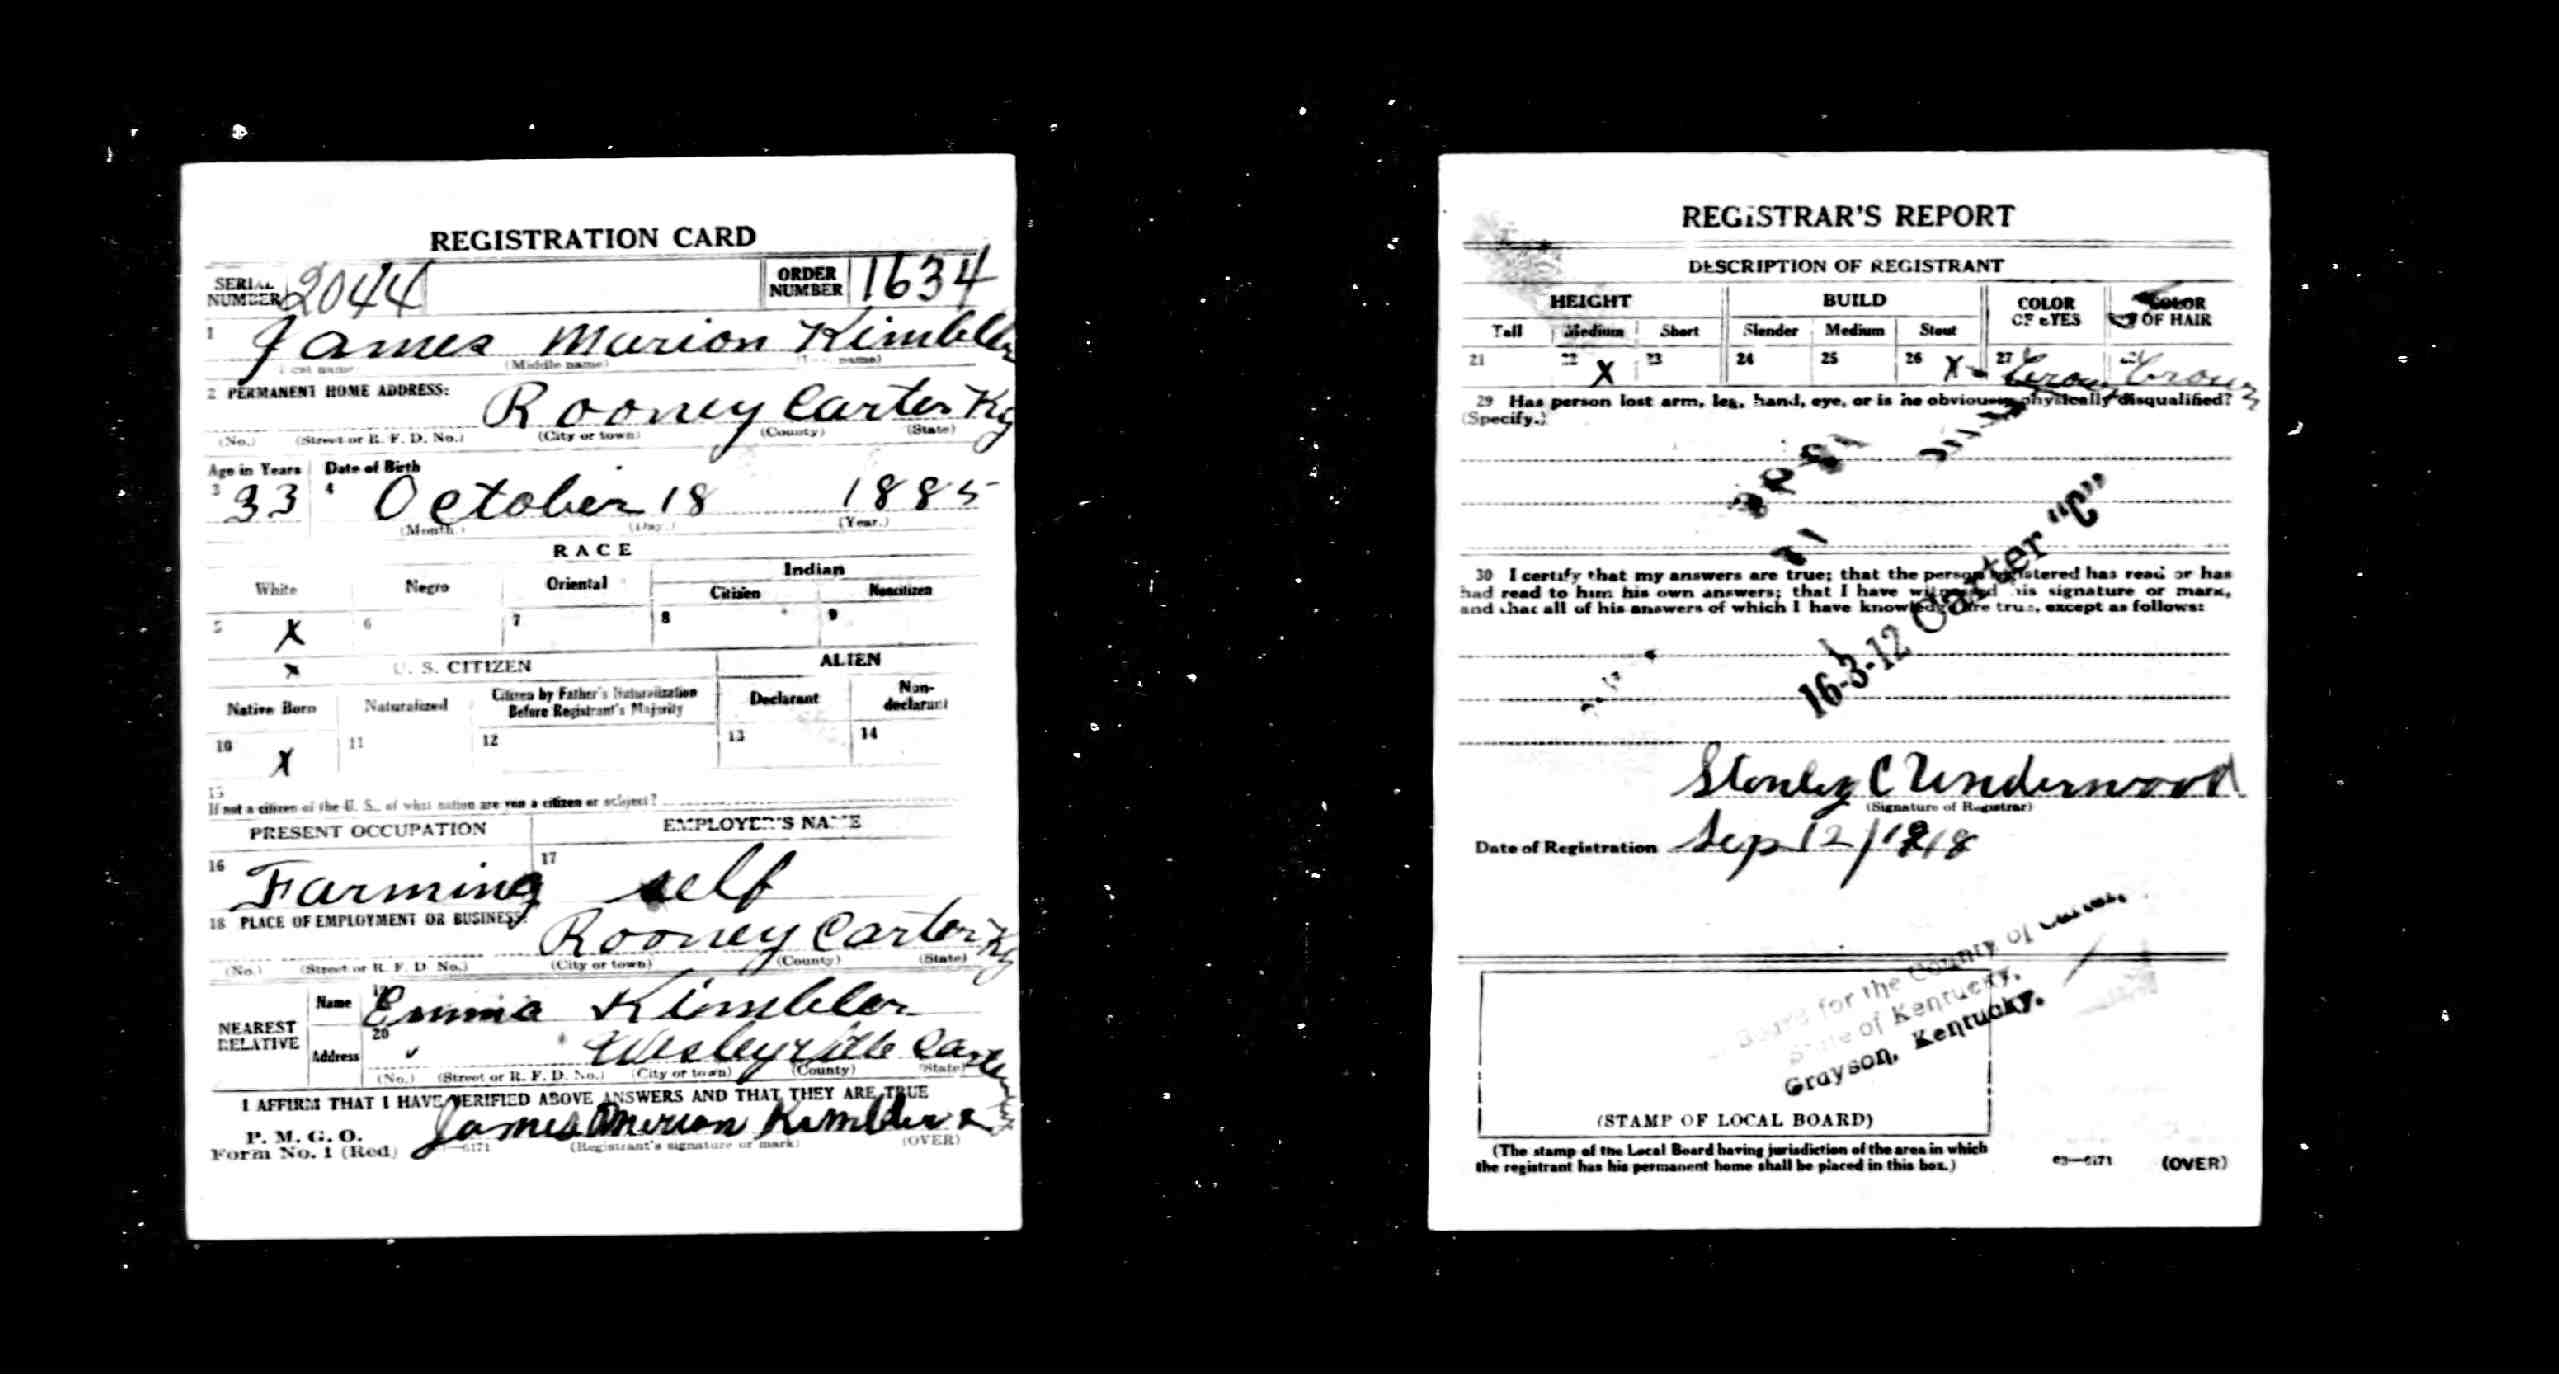 REGISTRATION CARD
SERIAL NUMBER 2044 ORDER NUMBER 1634
1 James Marion Kimbler
(Middle name) name)
2 PERMANENT HOME ADDRESS:
Rooney Carter Ky
(No.) (Street or R. F. D. No.) (City or town) (County) (State)
Age in Years Date of Birth
3 33 4 October 18 1885
(Month.) (Day.) (Year.)
RACE
White Negro Oriental Indian
Citizen Noncitizen
5 X 6 7 8 9
U. S. CITIZEN ALIEN
Native Born Naturalized Citizen by Father's Naturalization Before Registrant's Majority Declarant Non-declarant
10 X 11 12 13 14
15
If not a citizen of the U. S., of what nation are you a citizen or subject?
PRESENT OCCUPATION EMPLOYER'S NAME
16 Farming 17 self
18 PLACE OF EMPLOYMENT OR BUSINESS:
Rooney Carter Ky
(No.) (Street or R. F. D. No.) (City or town) (County) (State)
NEAREST RELATIVE
Name 19 Emma Kimbler
Address 20 Wesleyville Carter
(No.) (Street or R. F. D. No.) (City or town) (County) (State)
I AFFIRM THAT I HAVE VERIFIED ABOVE ANSWERS AND THAT THEY ARE TRUE
P. M. G. O.
Form No. 1 (Red) James Merion Kimbler
(Registrant's signature or mark) (OVER)
REGISTRAR'S REPORT
DESCRIPTION OF REGISTRANT
HEIGHT BUILD COLOR OF EYES COLOR OF HAIR
Tall Medium Short Slender Medium Stout
21 22 X 23 24 25 26 X 27 brown brown
29 Has person lost arm, leg, hand, eye, or is he obviously physically disqualified?
(Specify.)
30 I certify that my answers are true; that the person registered has read or has
had read to him his own answers; that I have witnessed his signature or mark,
and that all of his answers of which I have knowledge are true, except as follows:
16-3-12 Carter "C"
Stanley C Underwood
(Signature of Registrar)
Date of Registration Sep 12/1918
Board for the County of Carter,
State of Kentucky,
Grayson, Kentucky.
(STAMP OF LOCAL BOARD)
(The stamp of the Local Board having jurisdiction of the area in which
the registrant has his permanent home shall be placed in this box.)
03—6171 (OVER)